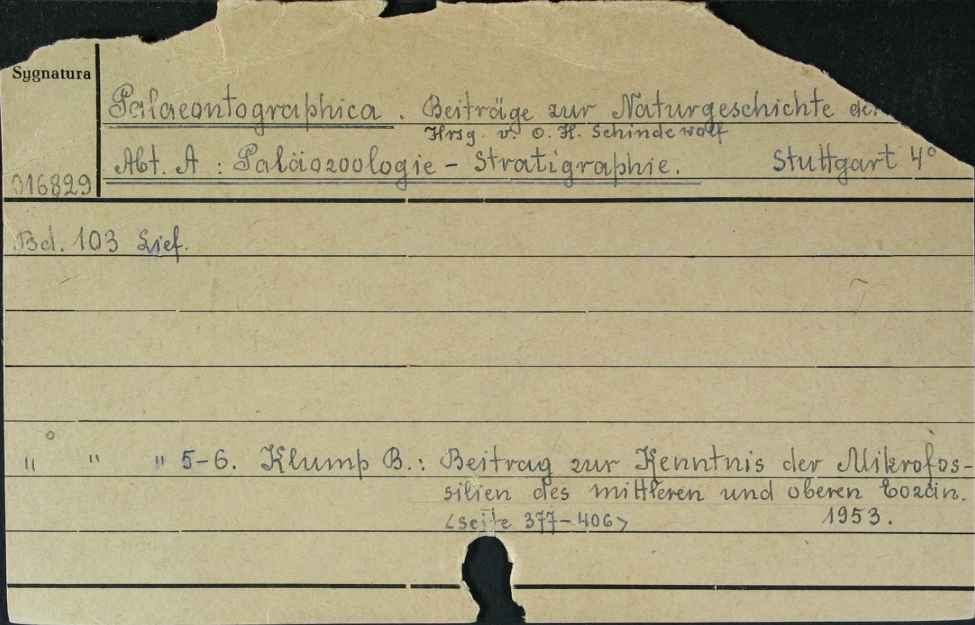 Sygnatura
Palaeontographica. Beiträge zur Naturgeschichte der
Hrsg. v. O. H. Schindewolf
Abt. A : Paläozoologie - Stratigraphie. Stuttgart 4°
016829
Bd. 103 Lief.
" " " 5-6. Klump B.: Beitrag zur Kenntnis der Mikrofos-
silien des mittleren und oberen Eozän.
<seite 377-406> 1953.